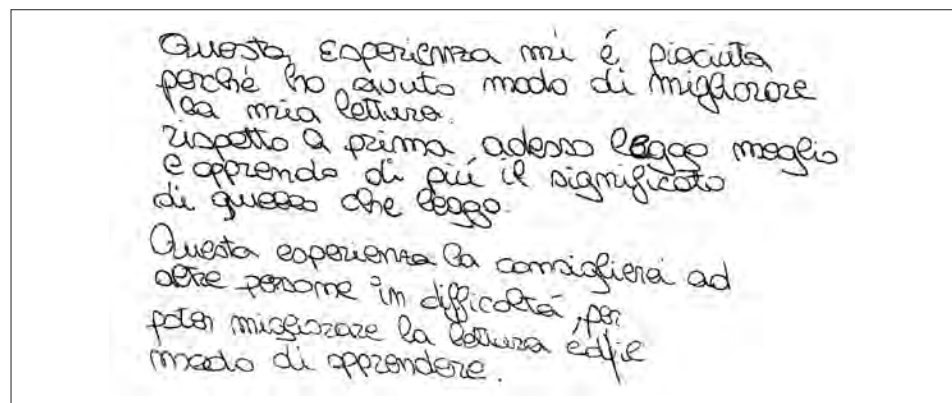 Questa esperienza mi é piaciuta
perché ho avuto modo di migliorare
la mia lettura.
rispetto a prima adesso leggo meglio
e apprendo di piú il significato
di quello che leggo.
Questa esperienza la consiglierei ad
altre persone in difficoltá, per
poter migliorare la lettura ed il
modo di apprendere.